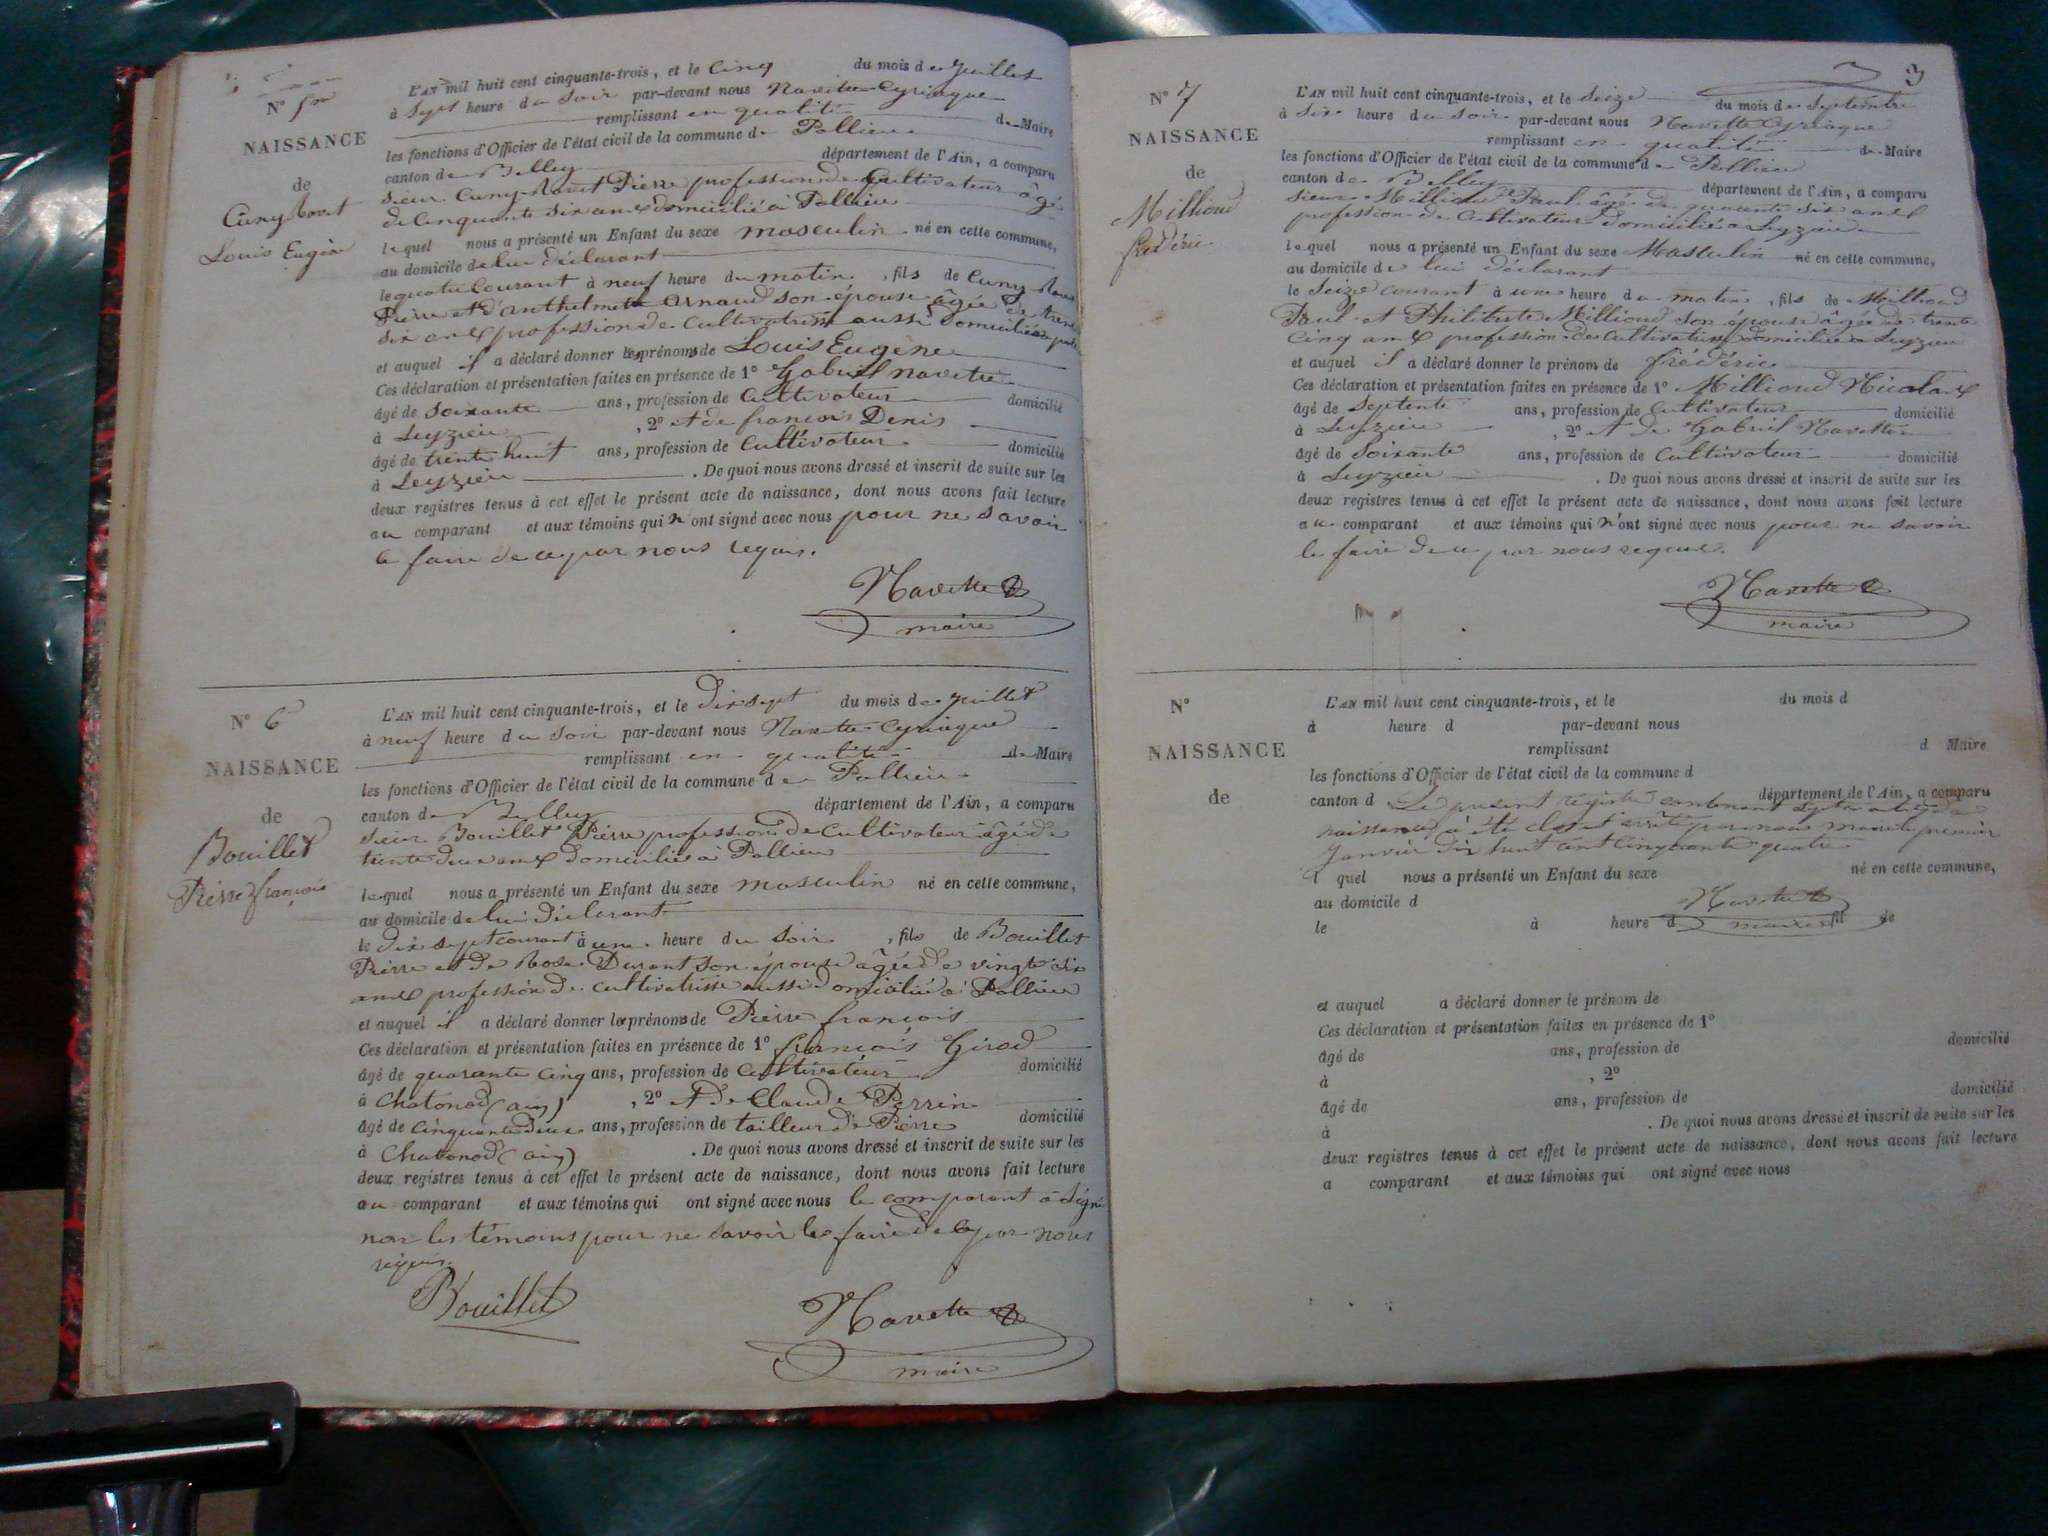 N° 5
NAISSANCE
de
Cuny Rout
Louis Eugène
L'AN mil huit cent cinquante-trois, et le cinq du mois de juillet
à sept heure du soir par-devant nous Navette Cyriaque
remplissant en qualité de Maire
les fonctions d'Officier de l'état civil de la commune de Pollieu
canton de Belley département de l'Ain, a comparu
sieur Cuny Rout Pierre profession de Cultivateur âgé
de cinquante six ans domicilié à Pollieu
lequel nous a présenté un Enfant du sexe masculin né en cette commune,
au domicile de lui déclarant
le quatre courant à neuf heure du matin, fils de Cuny Rout
Pierre et d'anthelmette Arnaud son épouse âgée de trente
six ans profession de cultivatrisse aussi domiciliée à
et auquel il a déclaré donner les prénoms de Louis Eugène
Ces déclaration et présentation faites en présence de 1° Gabriel Navette
âgé de soixante ans, profession de cultivateur domicilié
à Leyzieu, 2° et de françois Denis
âgé de trente huit ans, profession de cultivateur domicilié
à Leyzieu. De quoi nous avons dressé et inscrit de suite sur les
deux registres tenus à cet effet le présent acte de naissance, dont nous avons fait lecture
au comparant et aux témoins qui n'ont signé avec nous pour ne savoir
le faire de ce par nous requis.
Navette
maire
N° 6
NAISSANCE
de
Bouillet
Pierre françois
L'AN mil huit cent cinquante-trois, et le dix sept du mois de juillet
à neuf heure du soir par-devant nous Navette Cyriaque
remplissant en qualité de Maire
les fonctions d'Officier de l'état civil de la commune de Pollieu
canton de Belley département de l'Ain, a comparu
sieur Bouillet Pierre profession de cultivateur âgé de
trente deux ans domicilié à Pollieu
lequel nous a présenté un Enfant du sexe masculin né en cette commune,
au domicile de lui déclarant
le dix sept courant à une heure du soir, fils de Bouillet
Pierre et de Rose Durant son épouse âgée de vingt six
ans profession de cultivatrisse aussi domiciliée à Pollieu
et auquel il a déclaré donner les prénoms de Pierre françois
Ces déclaration et présentation faites en présence de 1° françois Girod
âgé de quarante cinq ans, profession de cultivateur domicilié
à Chatonod (ain), 2° et de Claude Perrin
âgé de cinquante deux ans, profession de tailleur de Pierre domicilié
à Chatonod (ain). De quoi nous avons dressé et inscrit de suite sur les
deux registres tenus à cet effet le présent acte de naissance, dont nous avons fait lecture
au comparant et aux témoins qui ont signé avec nous le comparant a signé
non les témoins pour ne savoir le faire de ce par nous
requis.
Bouillet
Navette
maire
3
N° 7
NAISSANCE
de
Millioud
frédéric
L'AN mil huit cent cinquante-trois, et le seize du mois de septembre
à six heure du soir par-devant nous Navette Cyriaque
remplissant en qualité de Maire
les fonctions d'Officier de l'état civil de la commune de Pollieu
canton de Belley département de l'Ain, a comparu
sieur Millioud Paul âgé de quarante six ans
profession de cultivateur domicilié à Leyzieu
lequel nous a présenté un Enfant du sexe Masculin né en cette commune,
au domicile de lui déclarant
le seize courant à une heure du matin, fils de Millioud
Paul et Philiberte Millioud son épouse âgée de trente
cinq ans profession de cultivatrisse domiciliée à Leyzieu
et auquel il a déclaré donner le prénom de frédéric
Ces déclaration et présentation faites en présence de 1° Millioud Nicolas
âgé de septente ans, profession de cultivateur domicilié
à Leyzieu, 2° et de Gabriel Navette
âgé de soixante ans, profession de cultivateur domicilié
à Leyzieu. De quoi nous avons dressé et inscrit de suite sur les
deux registres tenus à cet effet le présent acte de naissance, dont nous avons fait lecture
au comparant et aux témoins qui n'ont signé avec nous pour ne savoir
le faire de ce par nous requis.
Navette
maire
N°
NAISSANCE
de
L'AN mil huit cent cinquante-trois, et le du mois d
à heure d par-devant nous
remplissant d Maire
les fonctions d'Officier de l'état civil de la commune d
canton d département de l'Ain, a comparu
Le présent registre contenant sept actes de
naissances a été clos et arrêté par nous maire le premier
janvier dix huit cent cinquante quatre
l quel nous a présenté un Enfant du sexe né en cette commune,
au domicile d
Navette
le à heure d fil de
maire
et auquel a déclaré donner le prénom de
Ces déclaration et présentation faites en présence de 1°
âgé de ans, profession de domicilié
à , 2°
âgé de ans, profession de domicilié
à . De quoi nous avons dressé et inscrit de suite sur les
deux registres tenus à cet effet le présent acte de naissance, dont nous avons fait lecture
a comparant et aux témoins qui ont signé avec nous